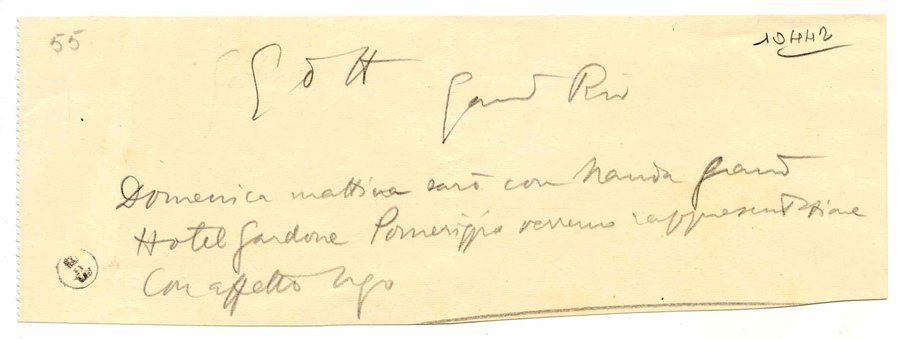 55
10442
Domenica mattina sarò con Nanda grand
Hotel Gardone Pomeriggio verremo rappresentazione
Con affetto Ugo